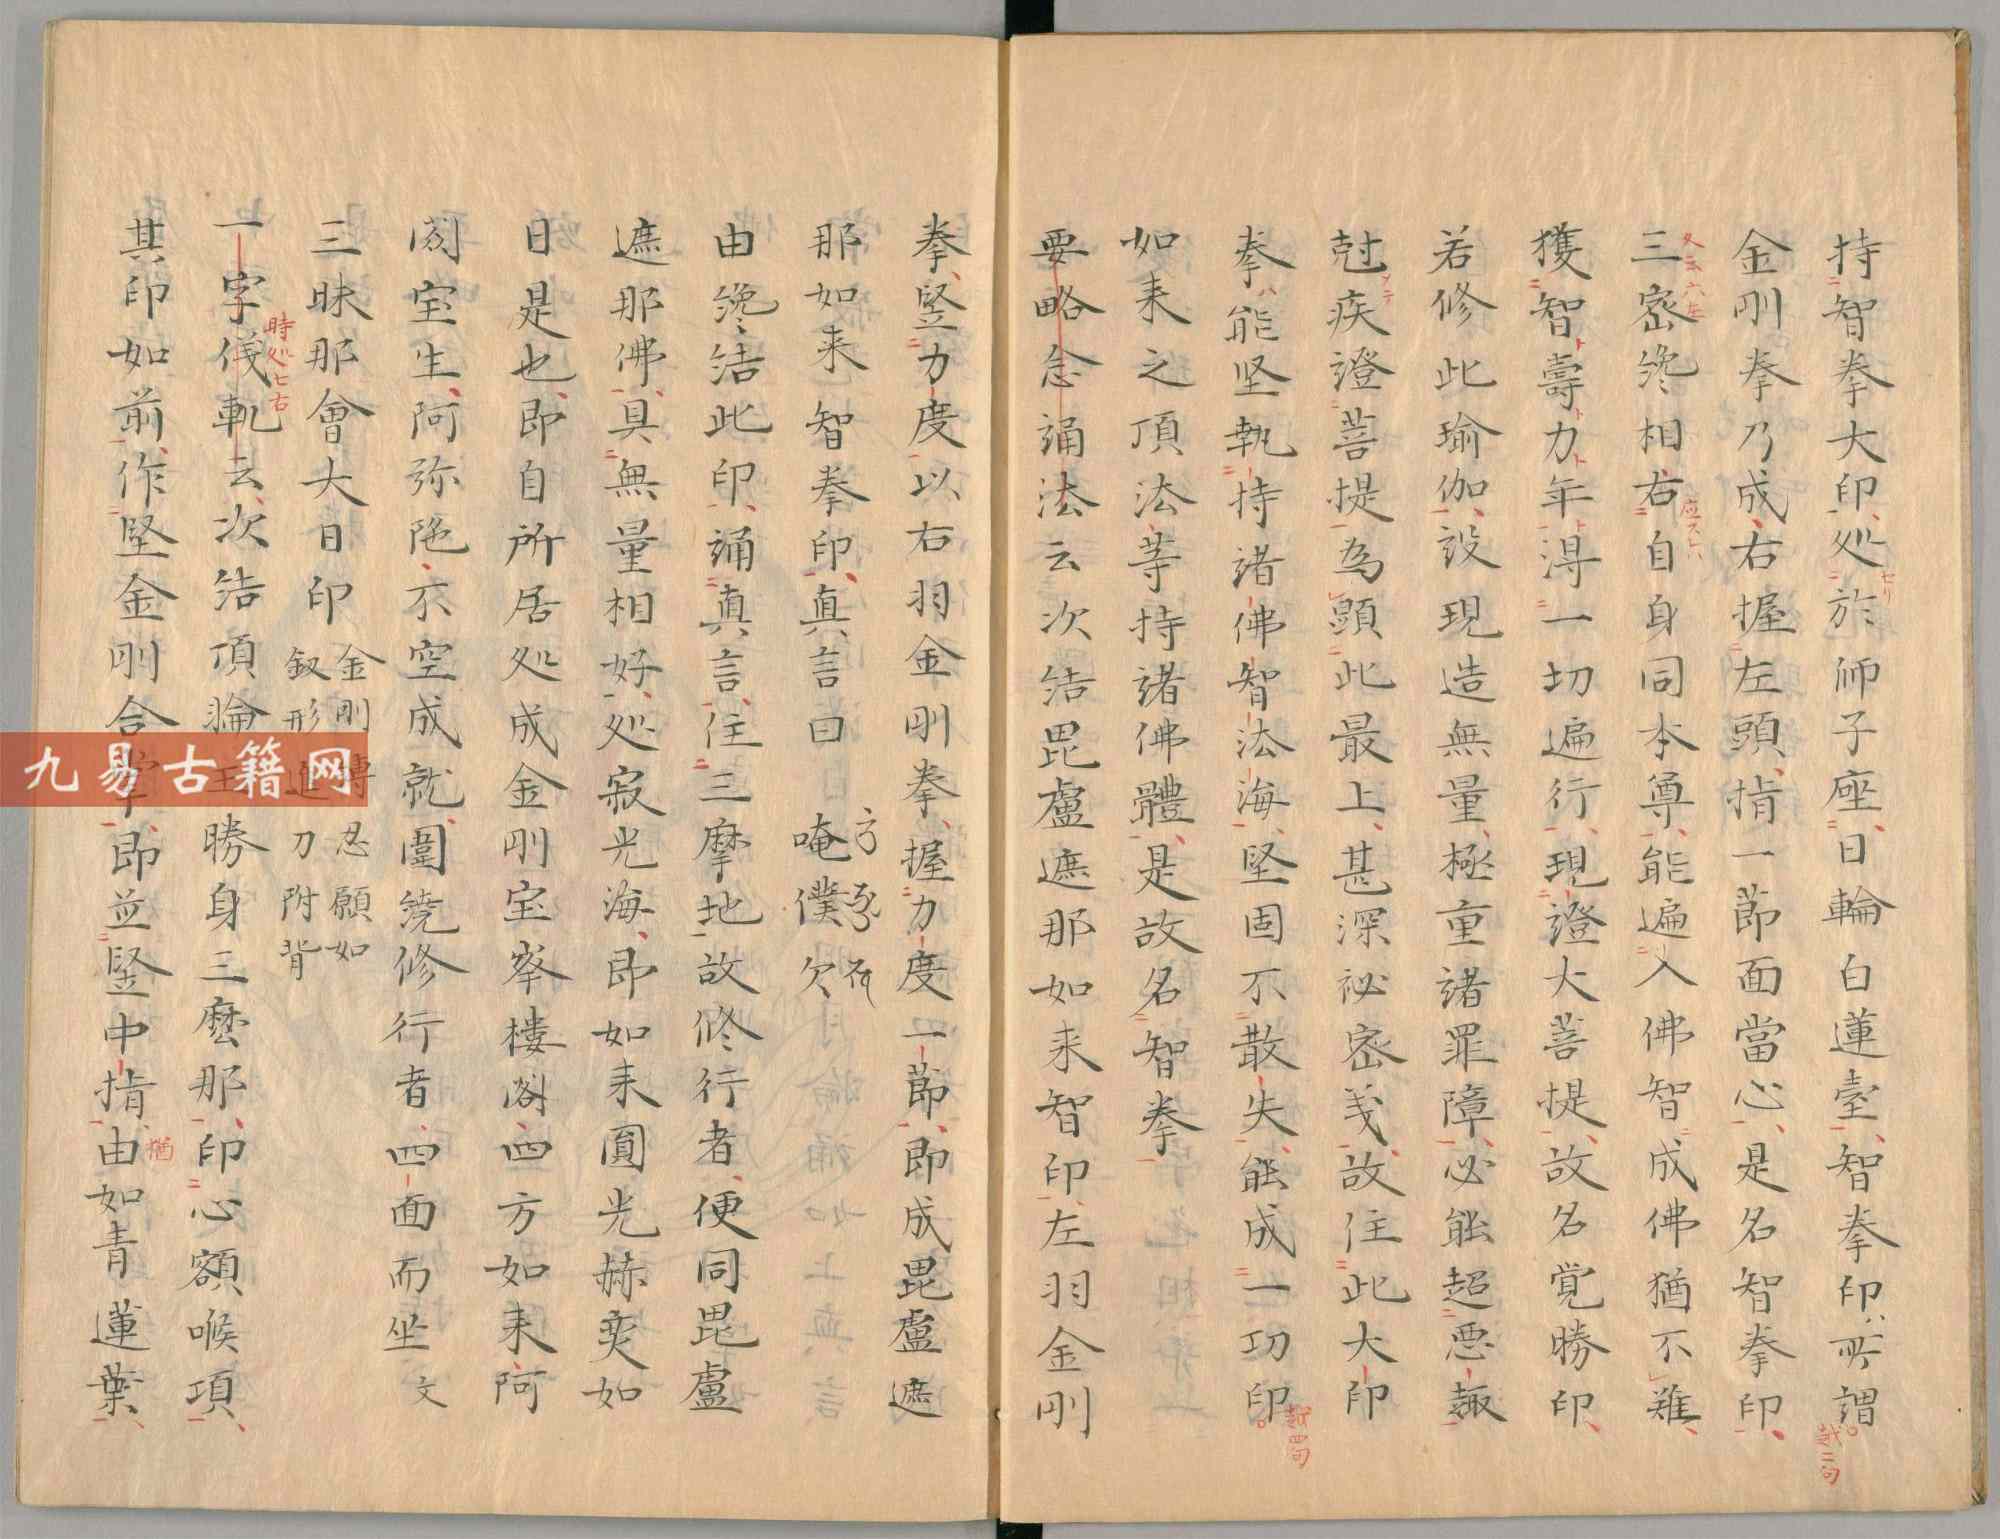 持智拳大印処於師子座日輪白蓮臺智拳印所謂
金剛拳乃成右握左頭指一節面當心是名智拳印
三密纔相右自身同本尊能遍入佛智成佛猶不難
獲智壽力年淂一切遍行現證大菩提故名覚勝印
若修此瑜伽設現造無量極重諸罪障必能超悪趣
尅疾證菩提為頭此最上甚深祕密義故住此大印
拳能坚執持諸佛智法海堅固不散失能成一切印
如来之頂法等持諸佛體是故名智拳
要略念誦法云次結毘盧遮那如来智印左羽金剛
拳竪力度以右羽金剛拳握力度一節即成毘盧遮
那如来智拳印真言曰 唵僕欠
由纔結此印誦真言住三摩地故修行者便同毘盧
遮那佛具無量相好処寂光海即如来圓光赫奕如
日是也即自所居処成金剛宝峯樓阁四方如来阿
閦宝生阿弥陁不空成就圍繞修行者四面而坐 文
三昧那會大日印 金剛縛忍願如
釼形進刀附背
一字儀軌云次結頂輪王勝身三麼那印心額喉項
其印如前作堅金剛合掌即並竪中指由如青蓮葉
時処七右
猶
越二句
越四句
九易古籍网